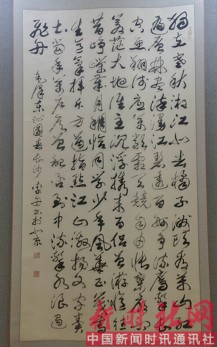 独立寒秋湘江北去橘子洲头看万山红
遍层林尽染漫江碧透百舸争流鹰击长
空鱼翔浅底万类霜天竞自由怅寥廓问
苍茫大地谁主沉浮携来百侣曾游忆往
昔峥嵘岁月稠恰同学少年风华正茂书
生意气挥斥方遒指点江山激扬文字粪
土当年万户侯曾记否到中流击水浪遏
飞舟
毛泽东沁园春长沙
中国新闻时讯通讯社